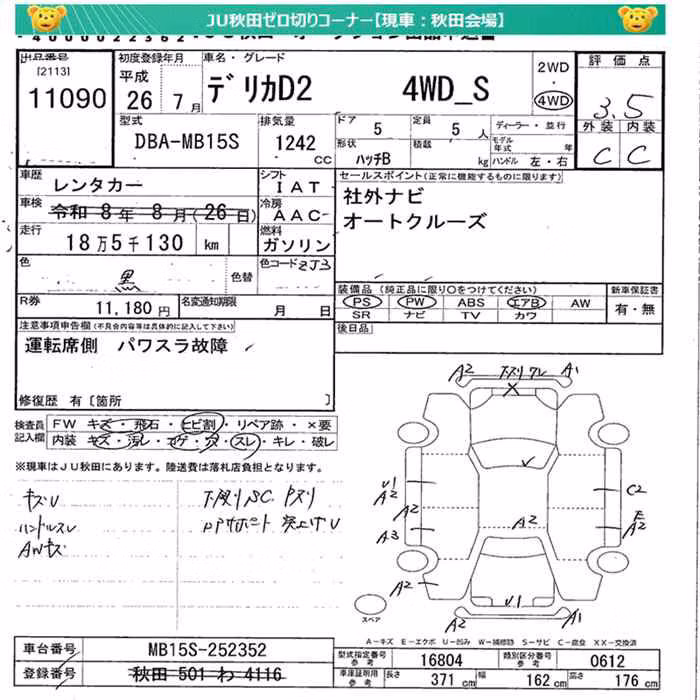 JU秋田ゼロ切りコーナー【現車：秋田会場】
出品番号
[2113]
11090
初度登録年月
平成
26 7月
車名・グレード
デリカD2 4WD_S
2WD
・
4WD
評価点
3.5
外装 内装
C C
型式
DBA-MB15S
排気量
1242
CC
ドア 5
定員 5 人
ディーラー・並行
形状 ハッチB
積載 kg
モデル年式 年
ハンドル 左・右
車歴
レンタカー
シフト
IAT
車検
令和 8年 8月(26日)
冷房
AAC
走行
18万5千130 km
燃料
ガソリン
色
黒
色替
色コード ZJ3
R券 11,180円
名変通知期限 月 日
セールスポイント(正常に機能するものに限ります)
社外ナビ
オートクルーズ
装備品 (純正品に限り○をつけてください)
PS PW ABS エアB AW
SR ナビ TV カワ
新車保証書
有・無
後日品
注意事項申告欄(不具合内容等は具体的に記入して下さい)
運転席側 パワスラ故障
修復歴 有〔箇所 〕
検査員記入欄
FW キズ・飛石・ヒビ割・リペア跡・×要
内装 キズ・汚レ・コゲ・穴・スレ・キレ・破レ
※現車はJU秋田にあります。陸送費は落札店負担となります。
キズU
ハンドルスレ
AWキズ
下廻りSC
突上げU
A2 A1
U1
A2
A2
A3
A2
C2
E
A2
A2
A2 U1 A1
スペア
A－キズ E－エクボ U－凹み W－補修跡 S－サビ C－腐食 XX－交換済
車台番号 MB15S-252352
登録番号 秋田 501 わ 4116
型式指定番号 参考 16804
類別区分番号 参考 0612
車庫証明用 参考 長さ 371 cm 幅 162 cm 高さ 176 cm